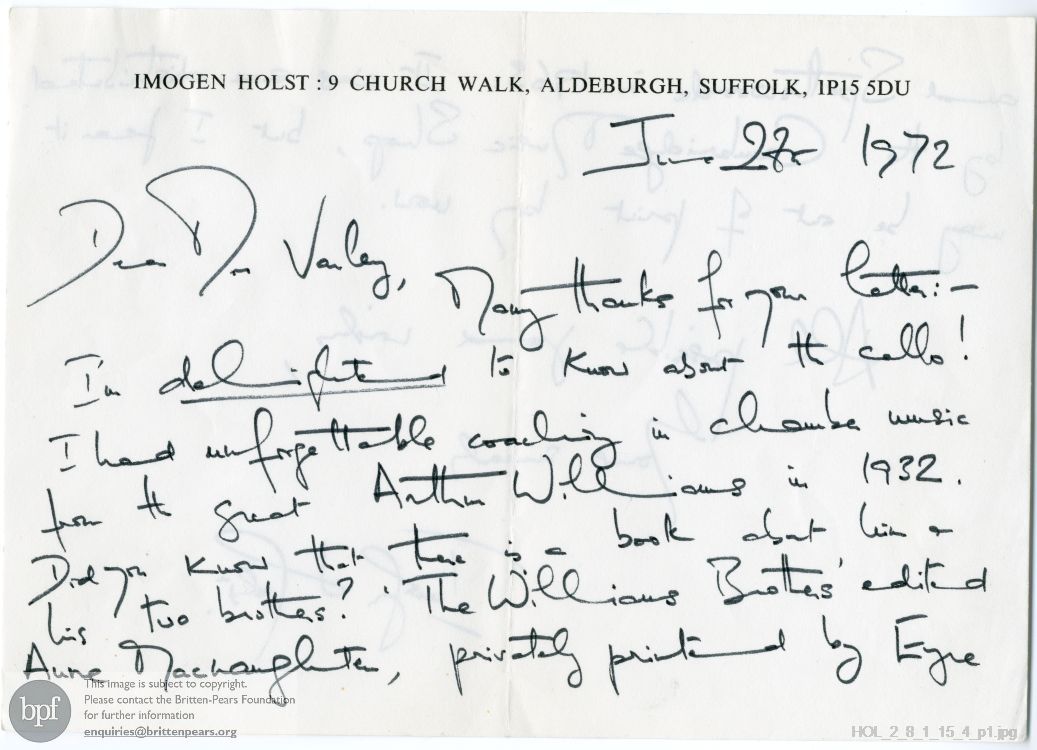 IMOGEN HOLST : 9 CHURCH WALK, ALDEBURGH, SUFFOLK, IP15 5DU
June 1972
Dear Varley,
Many thanks for your letter:–
I'm delighted to know about the cello!
I had unforgettable coaching in chamber music
from the great Arthur Williams in 1932.
Did you know that there is a book about him &
his two brothers? 'The Williams Brothers' edited
Anne Macnaghten, privately printed by Eyre
bpf
This image is subject to copyright.
Please contact the Britten-Pears Foundation
for further information
enquiries@brittenpears.org
HOL_2_8_1_15_4_p1.jpg